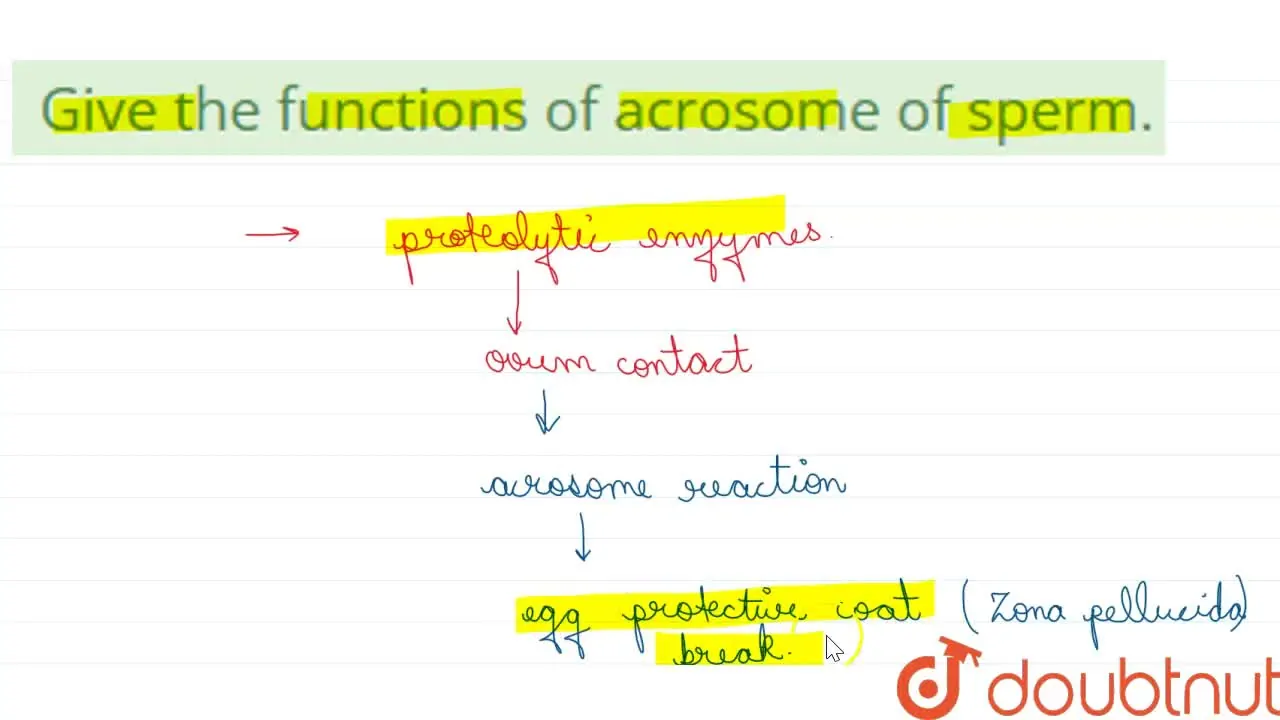 Give the functions of acrosome of sperm.
→ proteolytic enzymes.
↓
ovum contact
↓
acrosome reaction
↓
egg protective coat (Zona pellucida)
break.
doubtnut